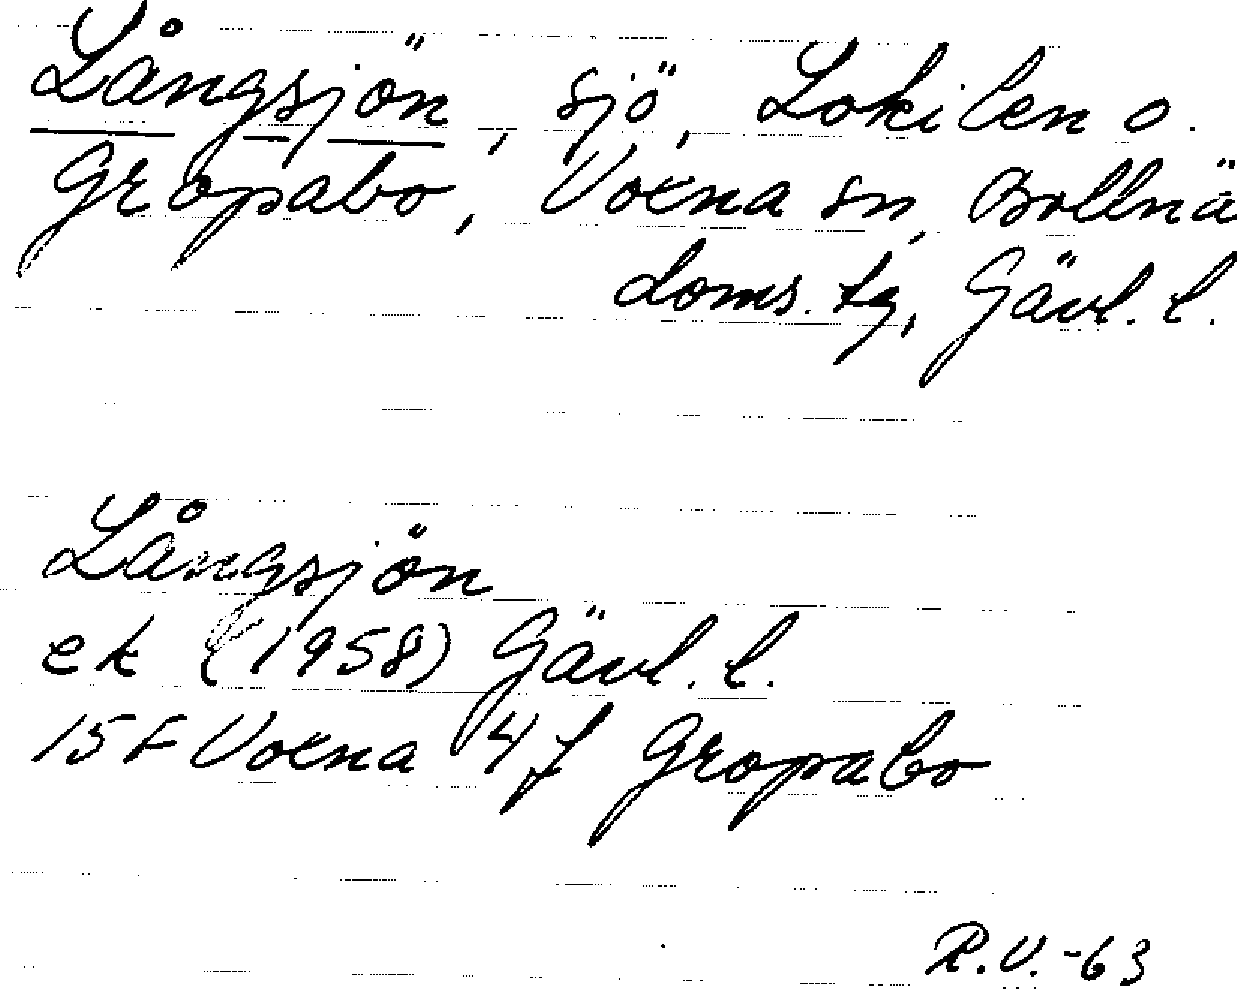 Långsjön, sjö, Lokilen o.
Gropabo, Voxna sn, Bollnä
doms. tg, Gävl. l.
Långsjön
ek (1958) Gävl. l.
15F Voxna 4 f Gropabo
R.V.-63